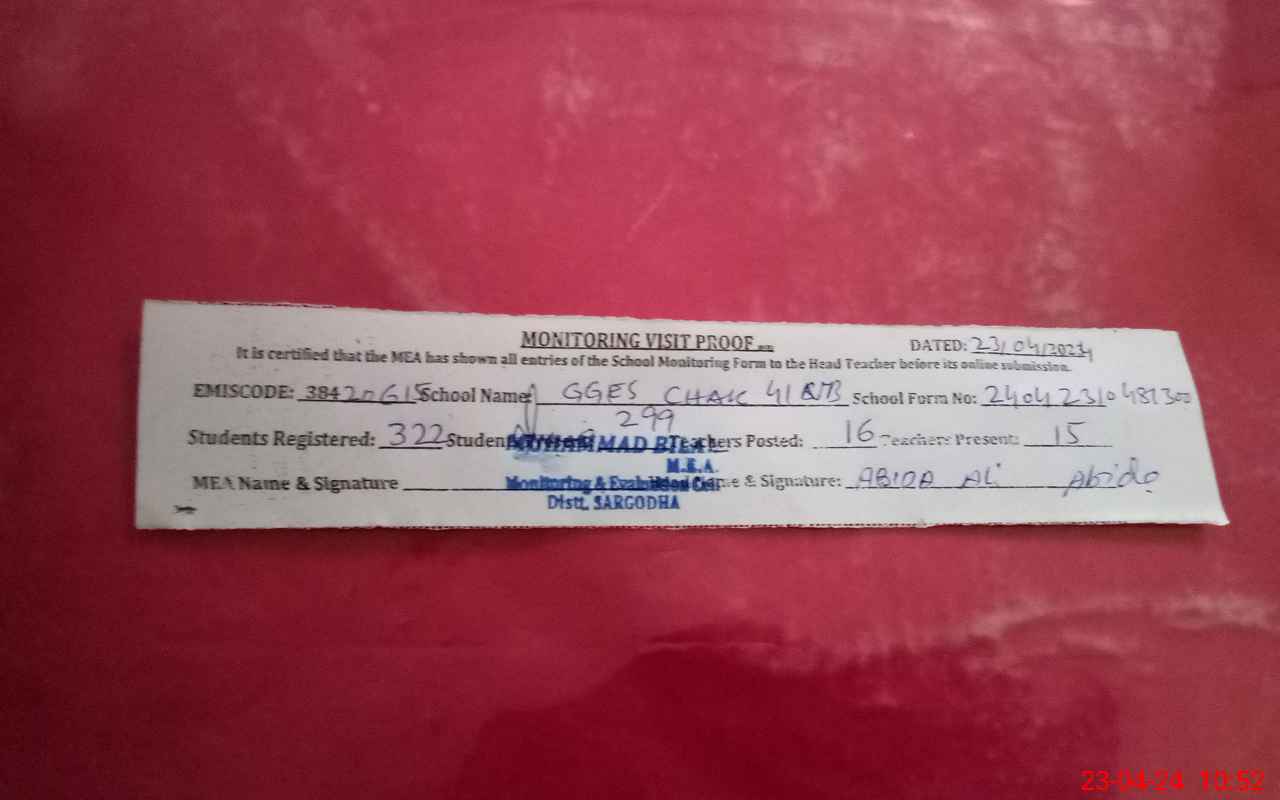 MONITORING VISIT PROOF
DATED: 23/04/2024
It is certified that the MEA has shown all entries of the School Monitoring Form to the Head Teacher before its online submission.
EMISCODE: 38420615 School Name: GGES CHAK 41 School Form No: 240423104
Students Registered: 322 299 Teachers Posted: 16 Teachers Present: 15
MEA Name & Signature & Signature: ABIDA ALi Abida
MUHAMMAD
M.E.A.
Monitoring &
Distt. SARGODHA
23-04-24 10:52